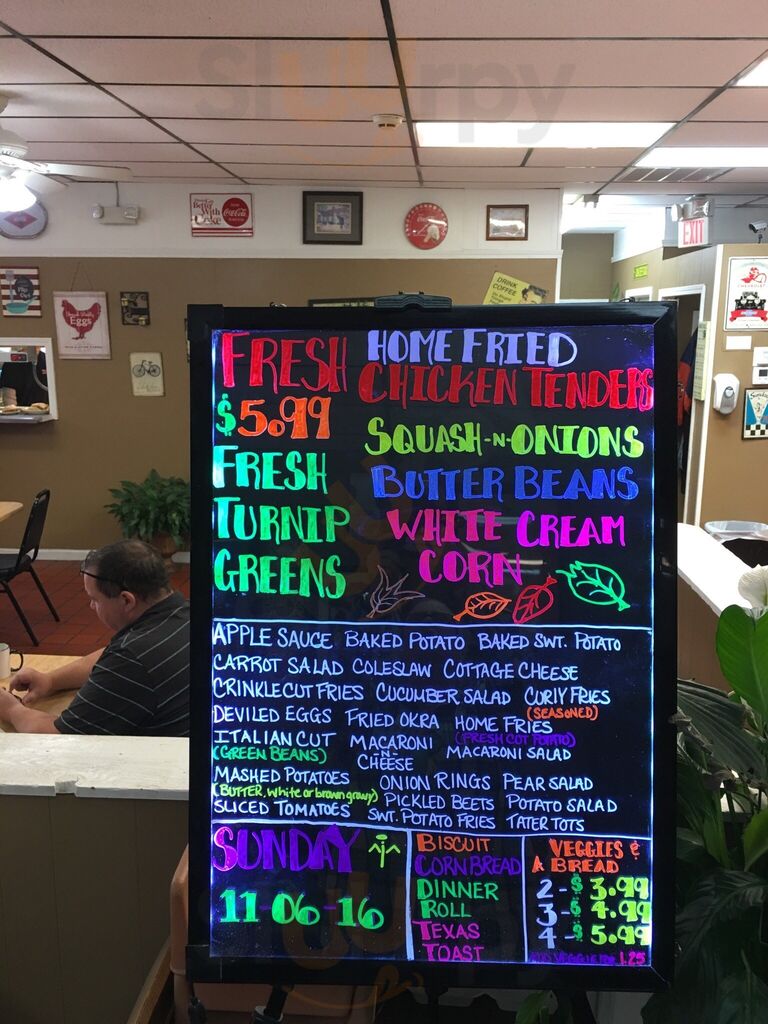 Sluurpy
EXIT
DRINK
COFFEE
Eggs
Coca-Cola
FRESH HOME FRIED
CHICKEN TENDERS
$5.99
SQUASH-N-ONIONS
FRESH
TURNIP
GREENS
BUTTER BEANS
WHITE CREAM
CORN
APPLE SAUCE BAKED POTATO BAKED SWT. POTATO
CARROT SALAD COLESLAW COTTAGE CHEESE
CRINKLECUT FRIES CUCUMBER SALAD CURLY FRIES
(SEASONED)
DEVILED EGGS FRIED OKRA HOME FRIES
(FRESH CUT POTATO)
ITALIAN CUT MACARONI MACARONI SALAD
(GREEN BEANS) -N-
CHEESE
MASHED POTATOES ONION RINGS PEAR SALAD
(BUTTER, white or brown gravy) PICKLED BEETS POTATO SALAD
SLICED TOMATOES SWT. POTATO FRIES TATER TOTS
SUNDAY
11-06-16
BISCUIT
CORNBREAD
DINNER
ROLL
TEXAS
TOAST
VEGGIES &
A BREAD
2-$3.99
3-$4.99
4-$5.99
VEGGIE 1.25